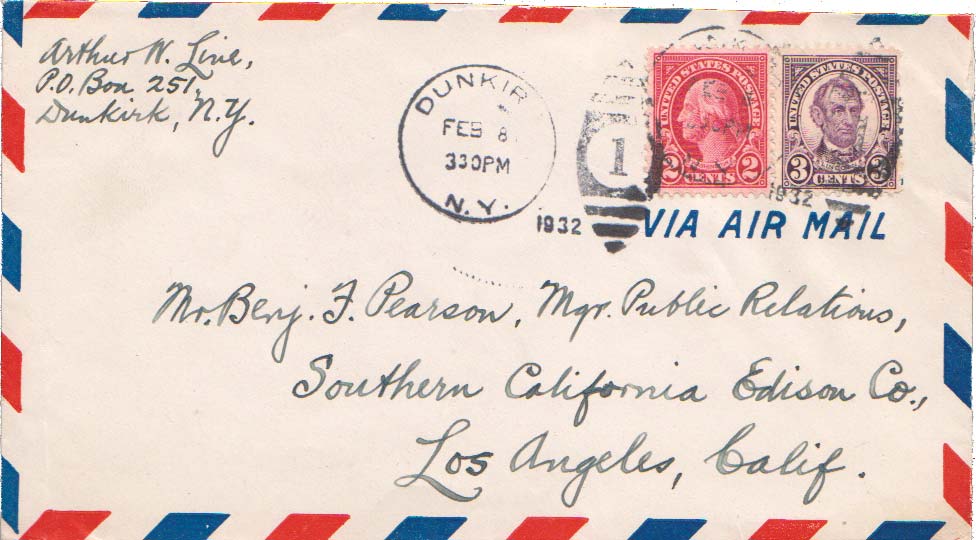 Arthur W. Line,
P.O. Box 251,
Dunkirk, N.Y.
DUNKIR
FEB 8
330PM
N.Y.
1932
1
UNITED STATES POSTAGE
2 CENTS 2
UNITED STATES POSTAGE
3 CENTS 3
1932
VIA AIR MAIL
Mr. Benj. F. Pearson, Mgr. Public Relations,
Southern California Edison Co.,
Los Angeles, Calif.